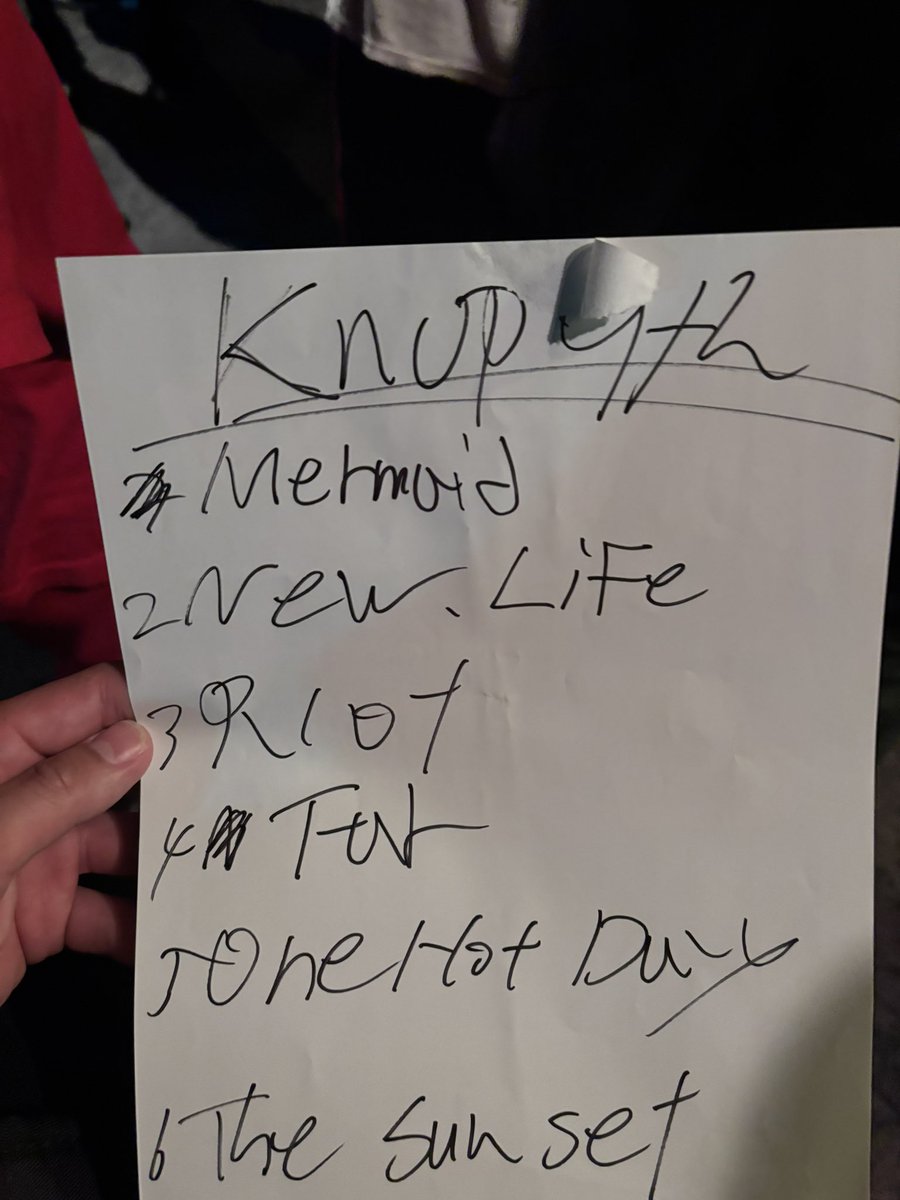 Mermaid
2 New. LiFe
3 Riot
4
5 One Hot Day
6 The Sunset